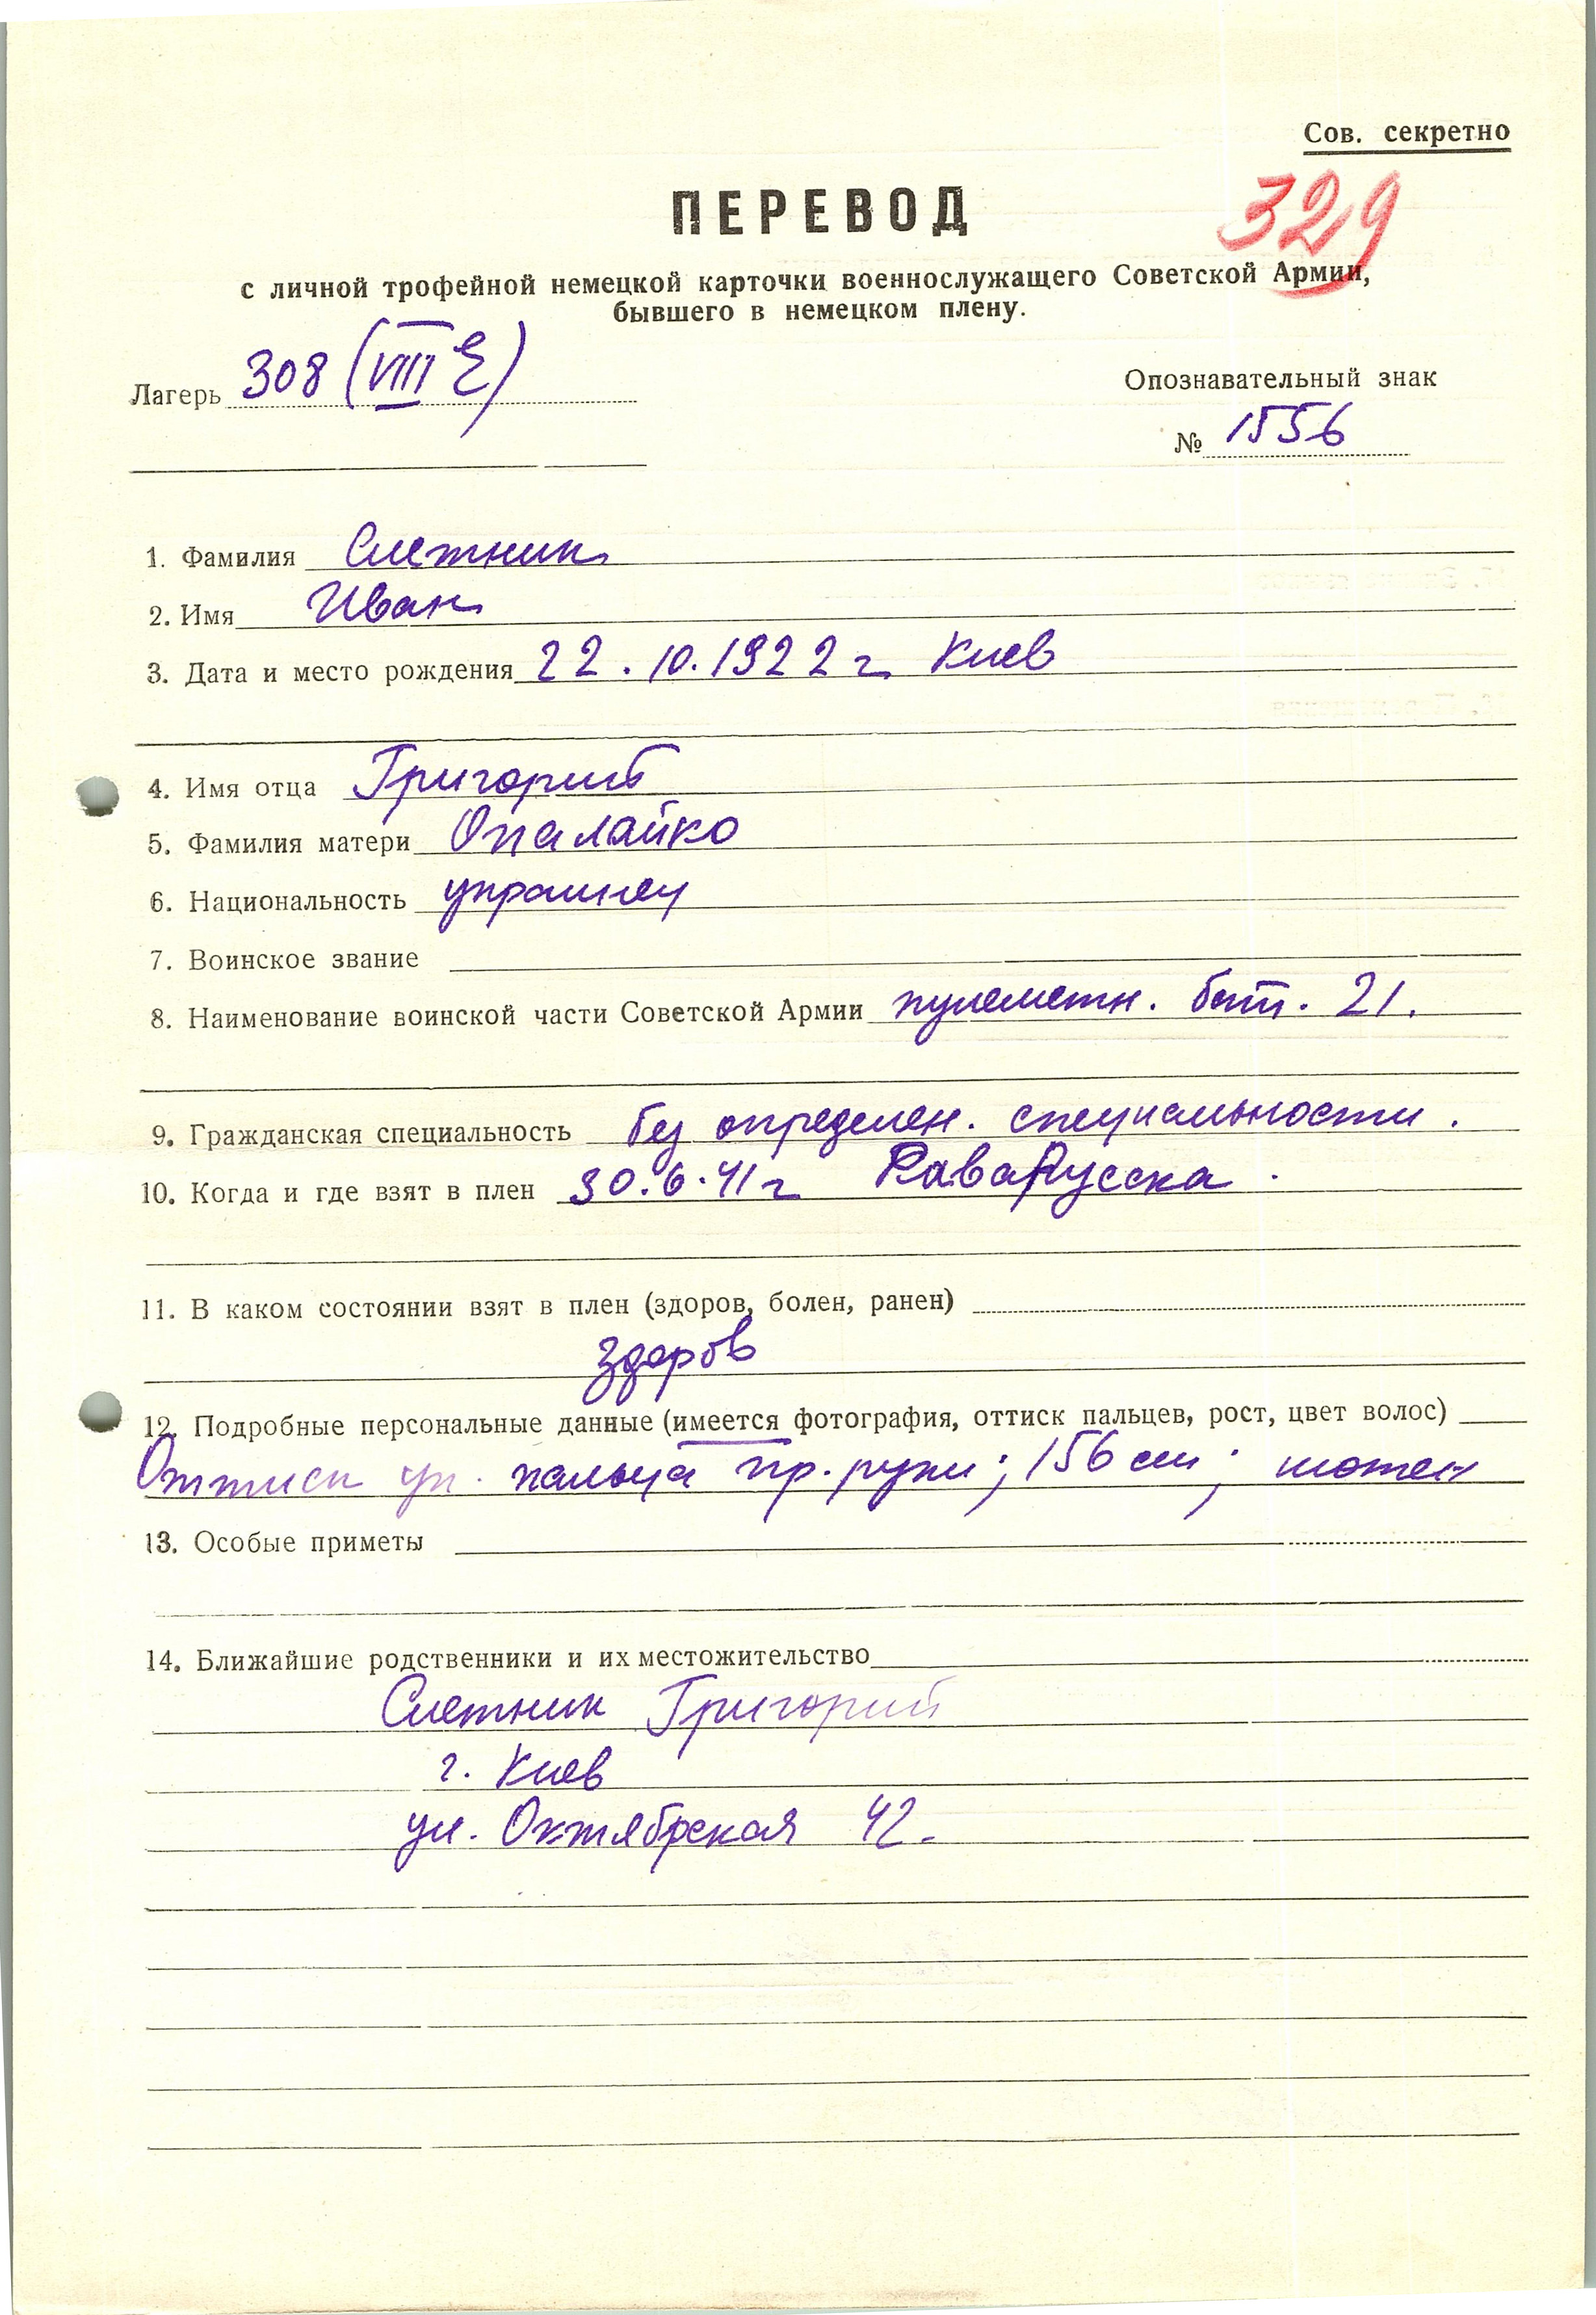 Сов. секретно
329
ПЕРЕВОД
с личной трофейной немецкой карточки военнослужащего Советской Армии,
бывшего в немецком плену.
Лагерь 308 (VIII E)
Опознавательный знак
№ 1556
1. Фамилия Слетник
2. Имя Иван
3. Дата и место рождения 22.10.1922 г Киев
4. Имя отца Григорий
5. Фамилия матери Опалайко
6. Национальность украинец
7. Воинское звание
8. Наименование воинской части Советской Армии пулеметн. бат. 21.
9. Гражданская специальность без определен. специальности.
10. Когда и где взят в плен 30.6.41 г РаваРусска.
11. В каком состоянии взят в плен (здоров, болен, ранен)
здоров
12. Подробные персональные данные (имеется фотография, оттиск пальцев, рост, цвет волос)
Оттиск ук. пальца пр. руки; 156 см; шатен
13. Особые приметы
14. Ближайшие родственники и их местожительство
Слетник Григорий
г. Киев
ул. Октябрская 42.